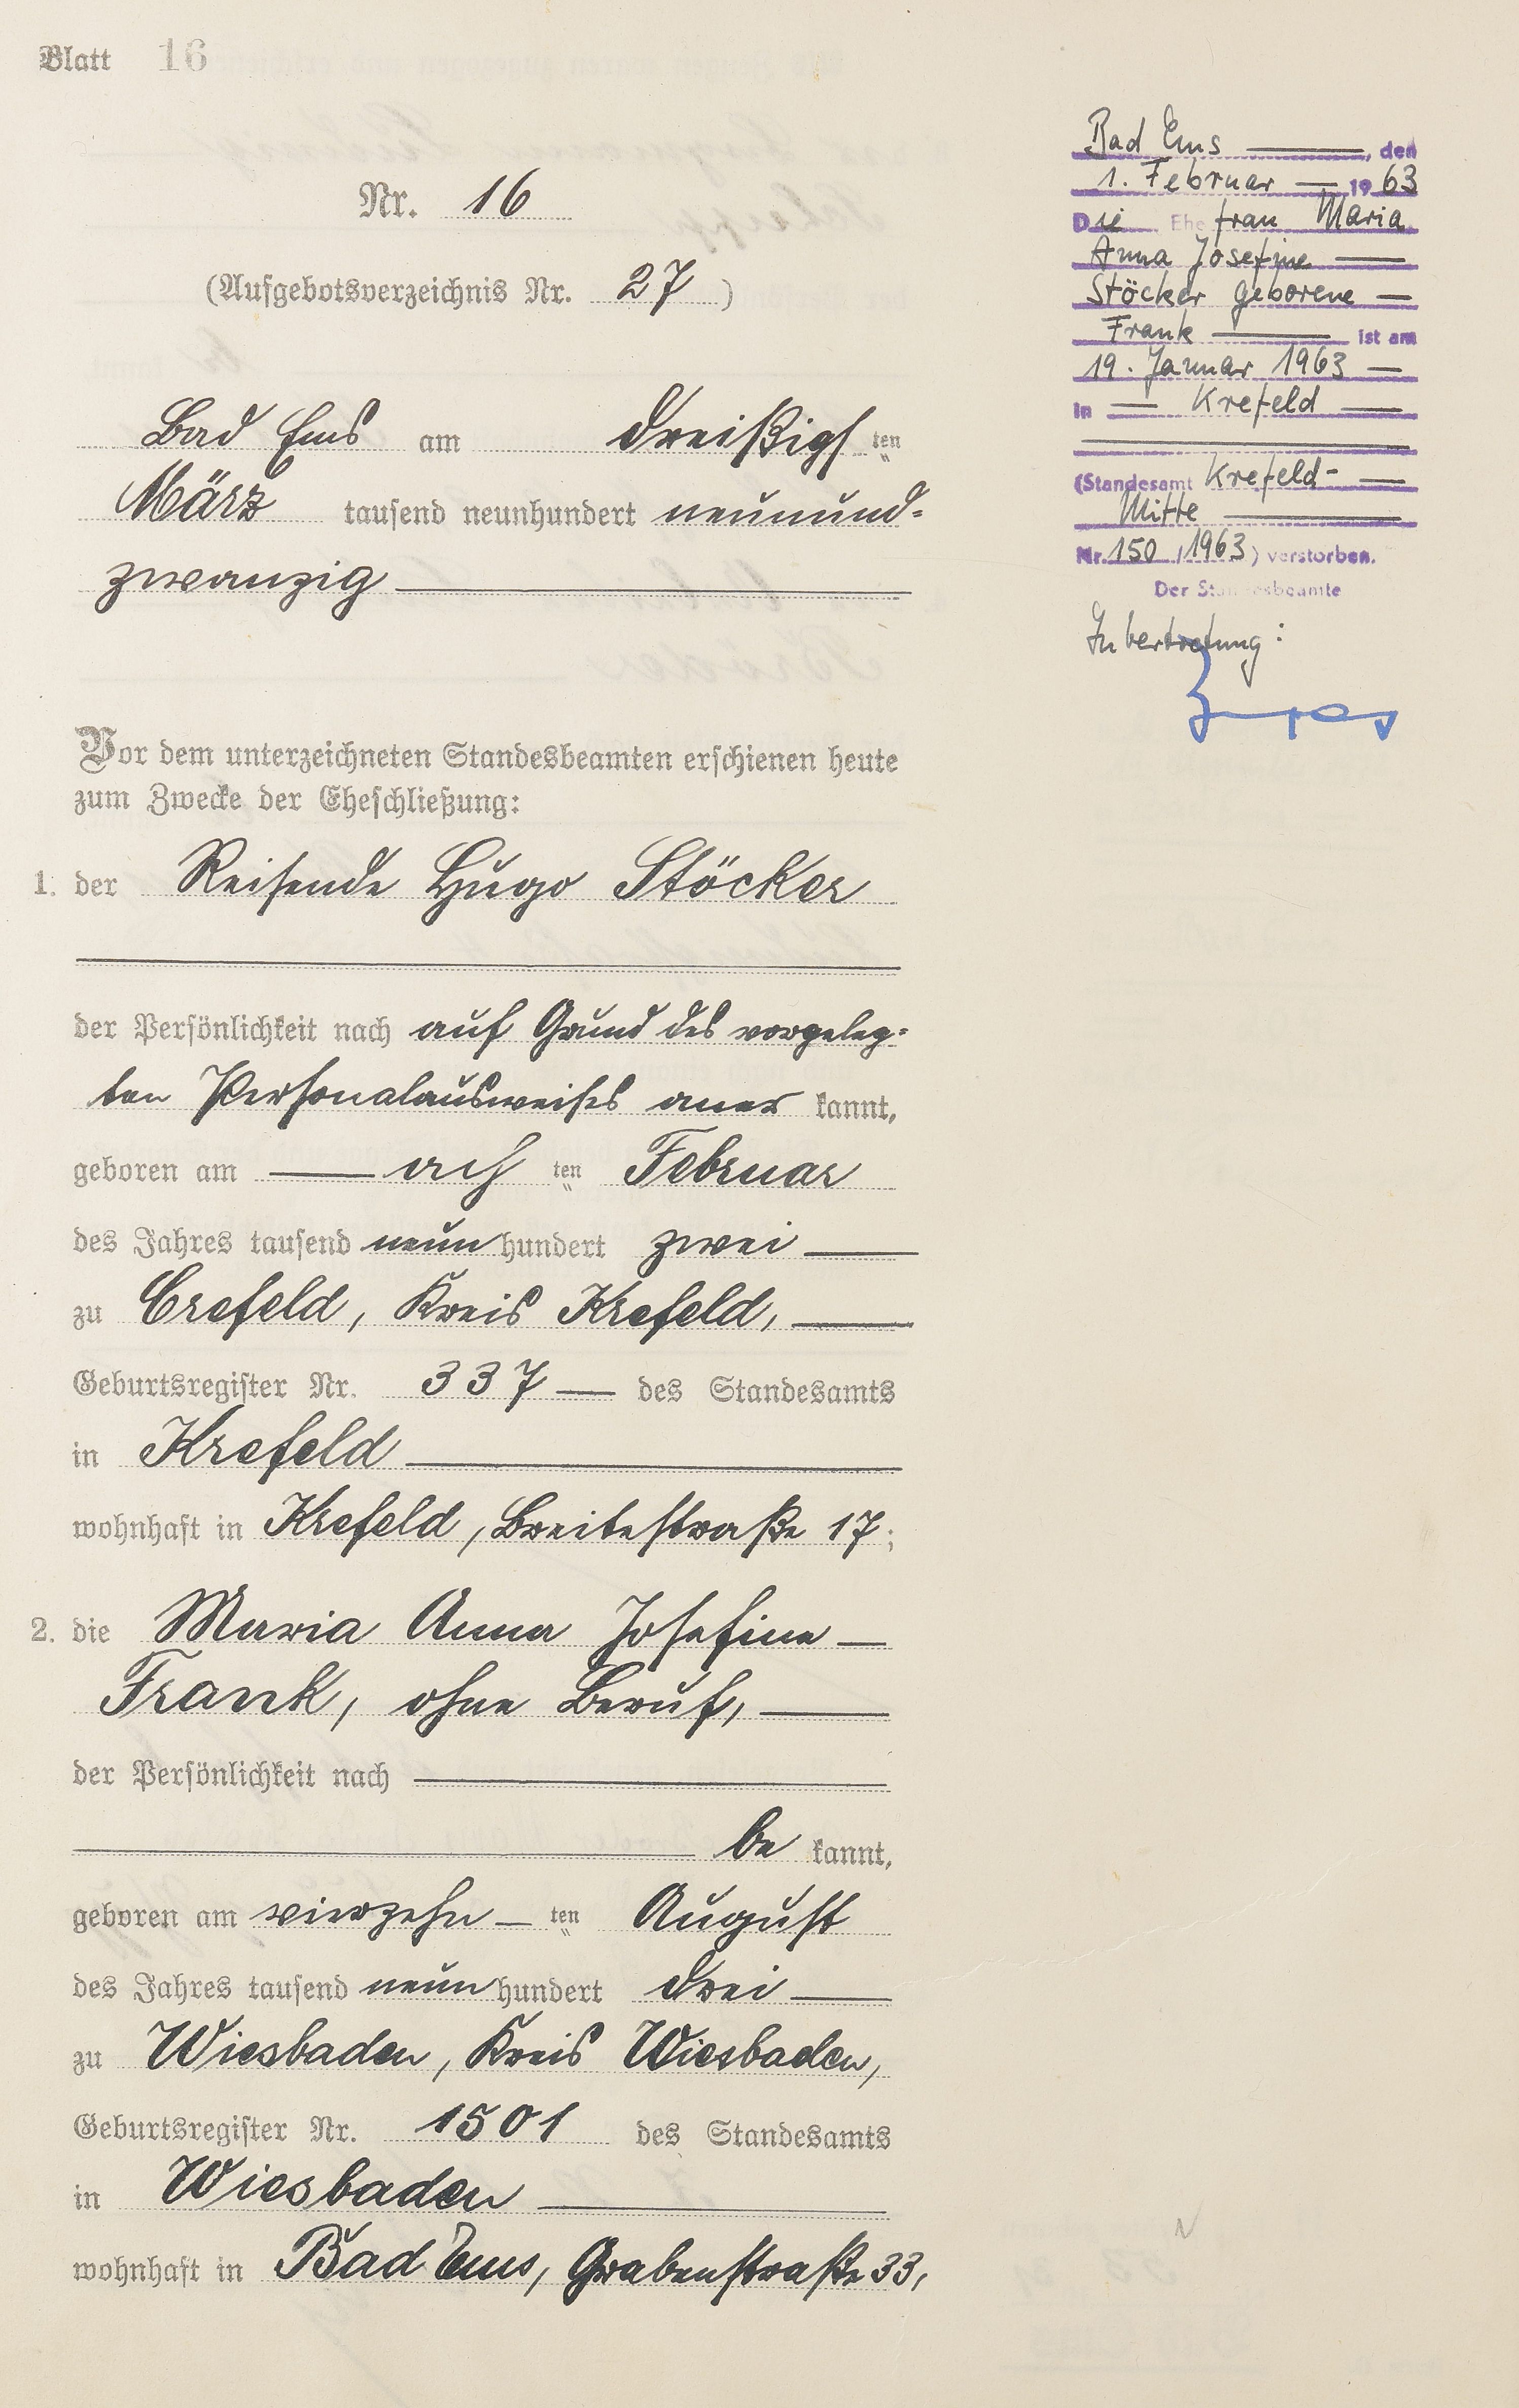 Blatt 16
Nr. 16
(Aufgebotsverzeichnis Nr. 27)
Bad Ems am dreißigsten
März tausend neunhundert neunund-
zwanzig
Vor dem unterzeichneten Standesbeamten erschienen heute
zum Zwecke der Eheschließung:
1. der Reisende Hugo Stöcker
der Persönlichkeit nach auf Grund des vorgeleg-
ten Personalausweises aner kannt,
geboren am achten Februar
des Jahres tausend neun hundert zwei
zu Crefeld, Kreis Krefeld,
Geburtsregister Nr. 337 des Standesamts
in Krefeld
wohnhaft in Krefeld, Breitestraße 17;
2. die Maria Anna Josefine
Frank, ohne Beruf,
der Persönlichkeit nach
be kannt,
geboren am vierzehnten August
des Jahres tausend neun hundert drei
zu Wiesbaden, Kreis Wiesbaden,
Geburtsregister Nr. 1501 des Standesamts
in Wiesbaden
wohnhaft in Bad Ems, Grabenstraße 33,
Bad Ems, den
1. Februar 1963
Die Ehefrau Maria
Anna Josefine
Stöcker geborene
Frank ist am
19. Januar 1963
in Krefeld
(Standesamt Krefeld-
Mitte
Nr. 150/1963) verstorben.
Der Standesbeamte
In Vertretung: